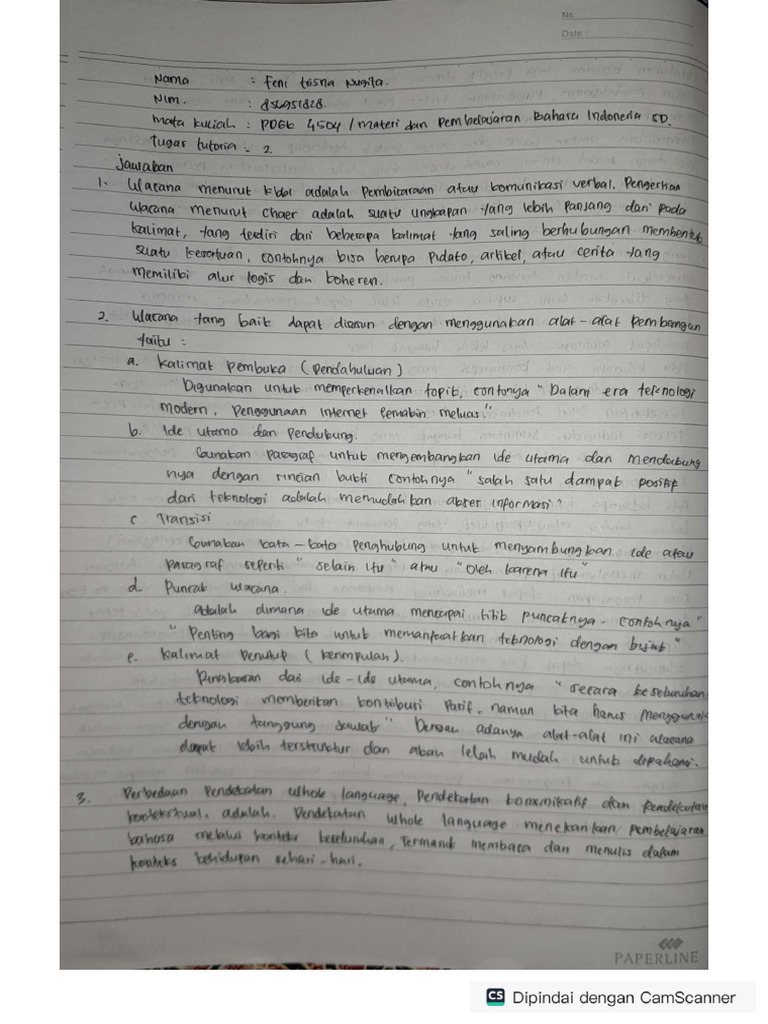 No.
Date :
Nama : feni trisna Nugita.
Nim. : 856951828.
Mata kuliah : PDGK 4504 / Materi dan Pembelajaran Bahasa Indonesia SD.
Tugas tutoria : 2
Jawaban
1. Wacana menurut kbbi adalah Pembicaraan atau komunikasi verbal. Pengertian
Wacana menurut chaer adalah suatu ungkapan yang lebih panjang dari pada
kalimat, yang terdiri dari beberapa kalimat yang saling berhubungan membentuk
suatu kesatuan, contohnya bisa berupa pidato, artikel, atau cerita yang
memiliki alur logis dan koheren.
2. Wacana yang baik dapat disusun dengan menggunakan alat-alat Pembangun
yaitu :
a. Kalimat Pembuka (Pendahuluan)
Digunakan untuk memperkenalkan topik, contonya "Dalam era teknologi
modern, Penggunaan Internet semakin meluas."
b. Ide utama dan Pendukung.
Gunakan Paragraf untuk mengembangkan ide utama dan mendukung
nya dengan rincian bukti contohnya "salah satu dampak positif
dari teknologi adalah memudahkan akses informasi"
c Transisi
Gunakan kata-kata Penghubung untuk menyambungkan ide atau
Paragraf seperti "selain itu" atau "Oleh karena itu"
d. Puncak wacana.
Adalah dimana ide utama mencapai titik puncaknya. contohnya "
" Penting bagi kita untuk memanfaatkan teknologi dengan bijak "
e. Kalimat Penutup (kesimpulan).
Ringkasan dari ide-ide utama, contohnya " secara keseluruhan
teknologi memberikan kontribusi Positif, namun kita harus menggunakan
dengan tanggung jawab" Dengan adanya alat-alat ini wacana
dapat lebih terstruktur dan akan lebih mudah untuk dipahami.
3. Perbedaan Pendekatan whole language, Pendekatan komunikatif dan Pendekatan
kontekstual. adalah. Pendekatan whole language menekankan pembelajaran
bahasa melalui konteks keseluruhan, Termasuk membaca dan menulis dalam
konteks kehidupan sehari-hari.
PAPERLINE
CS Dipindai dengan CamScanner